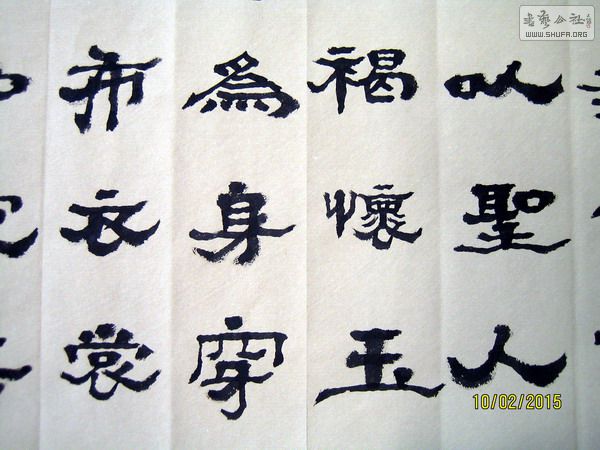 以聖人
褐懷玉
為身穿
布衣裳
书艺公社
WWW.SHUFA.ORG
10/02/2015